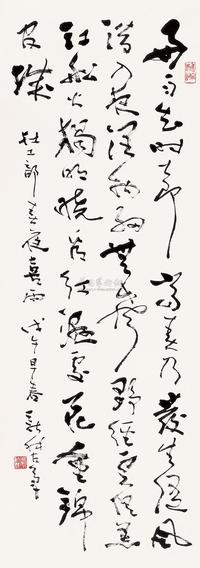 好雨知時節當春乃發生隨風
潛入夜潤物細無聲野徑雲俱黑
江船火獨明曉看紅濕處花重錦
官城
杜工部春夜喜雨 戊午早春